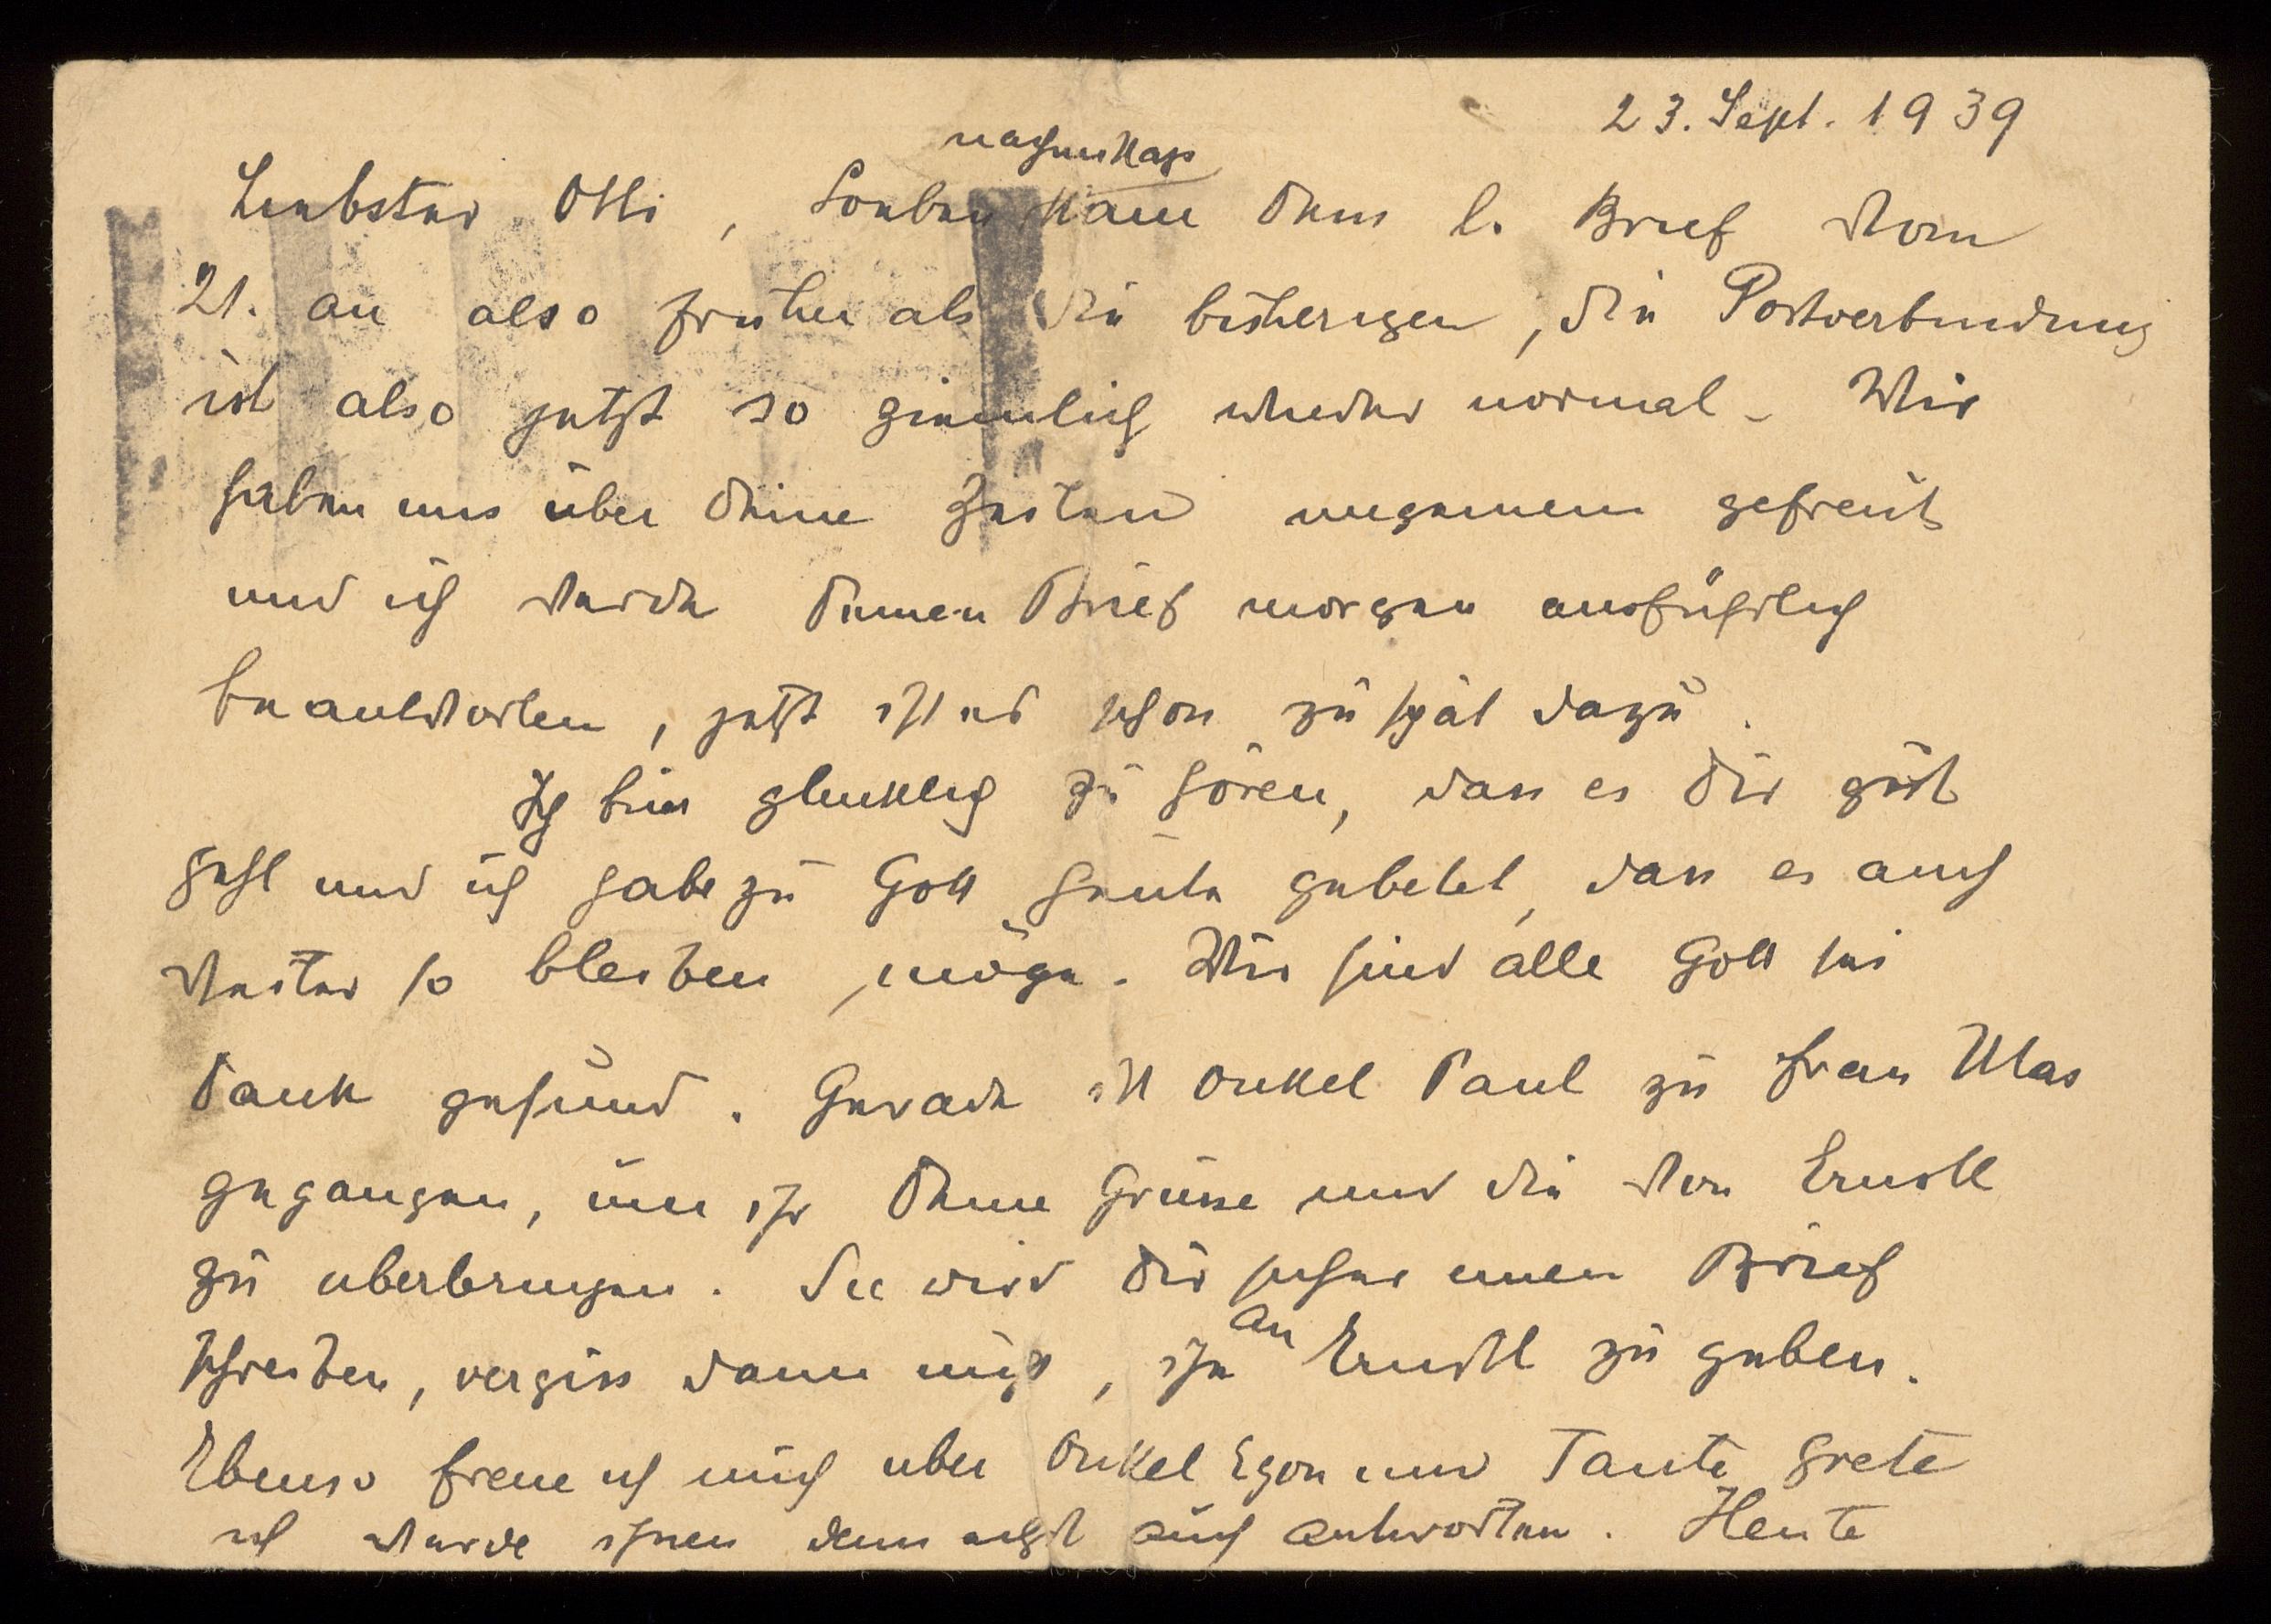 23. Sept. 1939
nachmittags
Liebster Otti, Soeben kam Dein l. Brief vom
21. an also früher als die bisherigen, die Postverbindung
ist also jetzt so ziemlich wieder normal. Wir
haben uns über Deine Zeilen ungemein gefreut
und ich werde Deinen Brief morgen ausführlich
beantworten, jetzt ist es schon zu spät dazu.
Ich bin glücklich zu hören, dass es Dir gut
geht und ich habe zu Gott heute gebetet, dass es auch
weiter so bleiben möge. Wir sind alle Gott sei
Dank gesund. Gerade ist Onkel Paul zu Frau
gegangen, um ihr Deine Grüsse und die von Ernstl
zu überbringen. Sie wird Dir sicher einen Brief
an
schreiben, vergiss dann nicht, ihn Ernstl zu geben.
Ebenso freue ich mich über Onkel Egon und Tante Grete
ich werde ihnen demnächst auch antworten. Heute